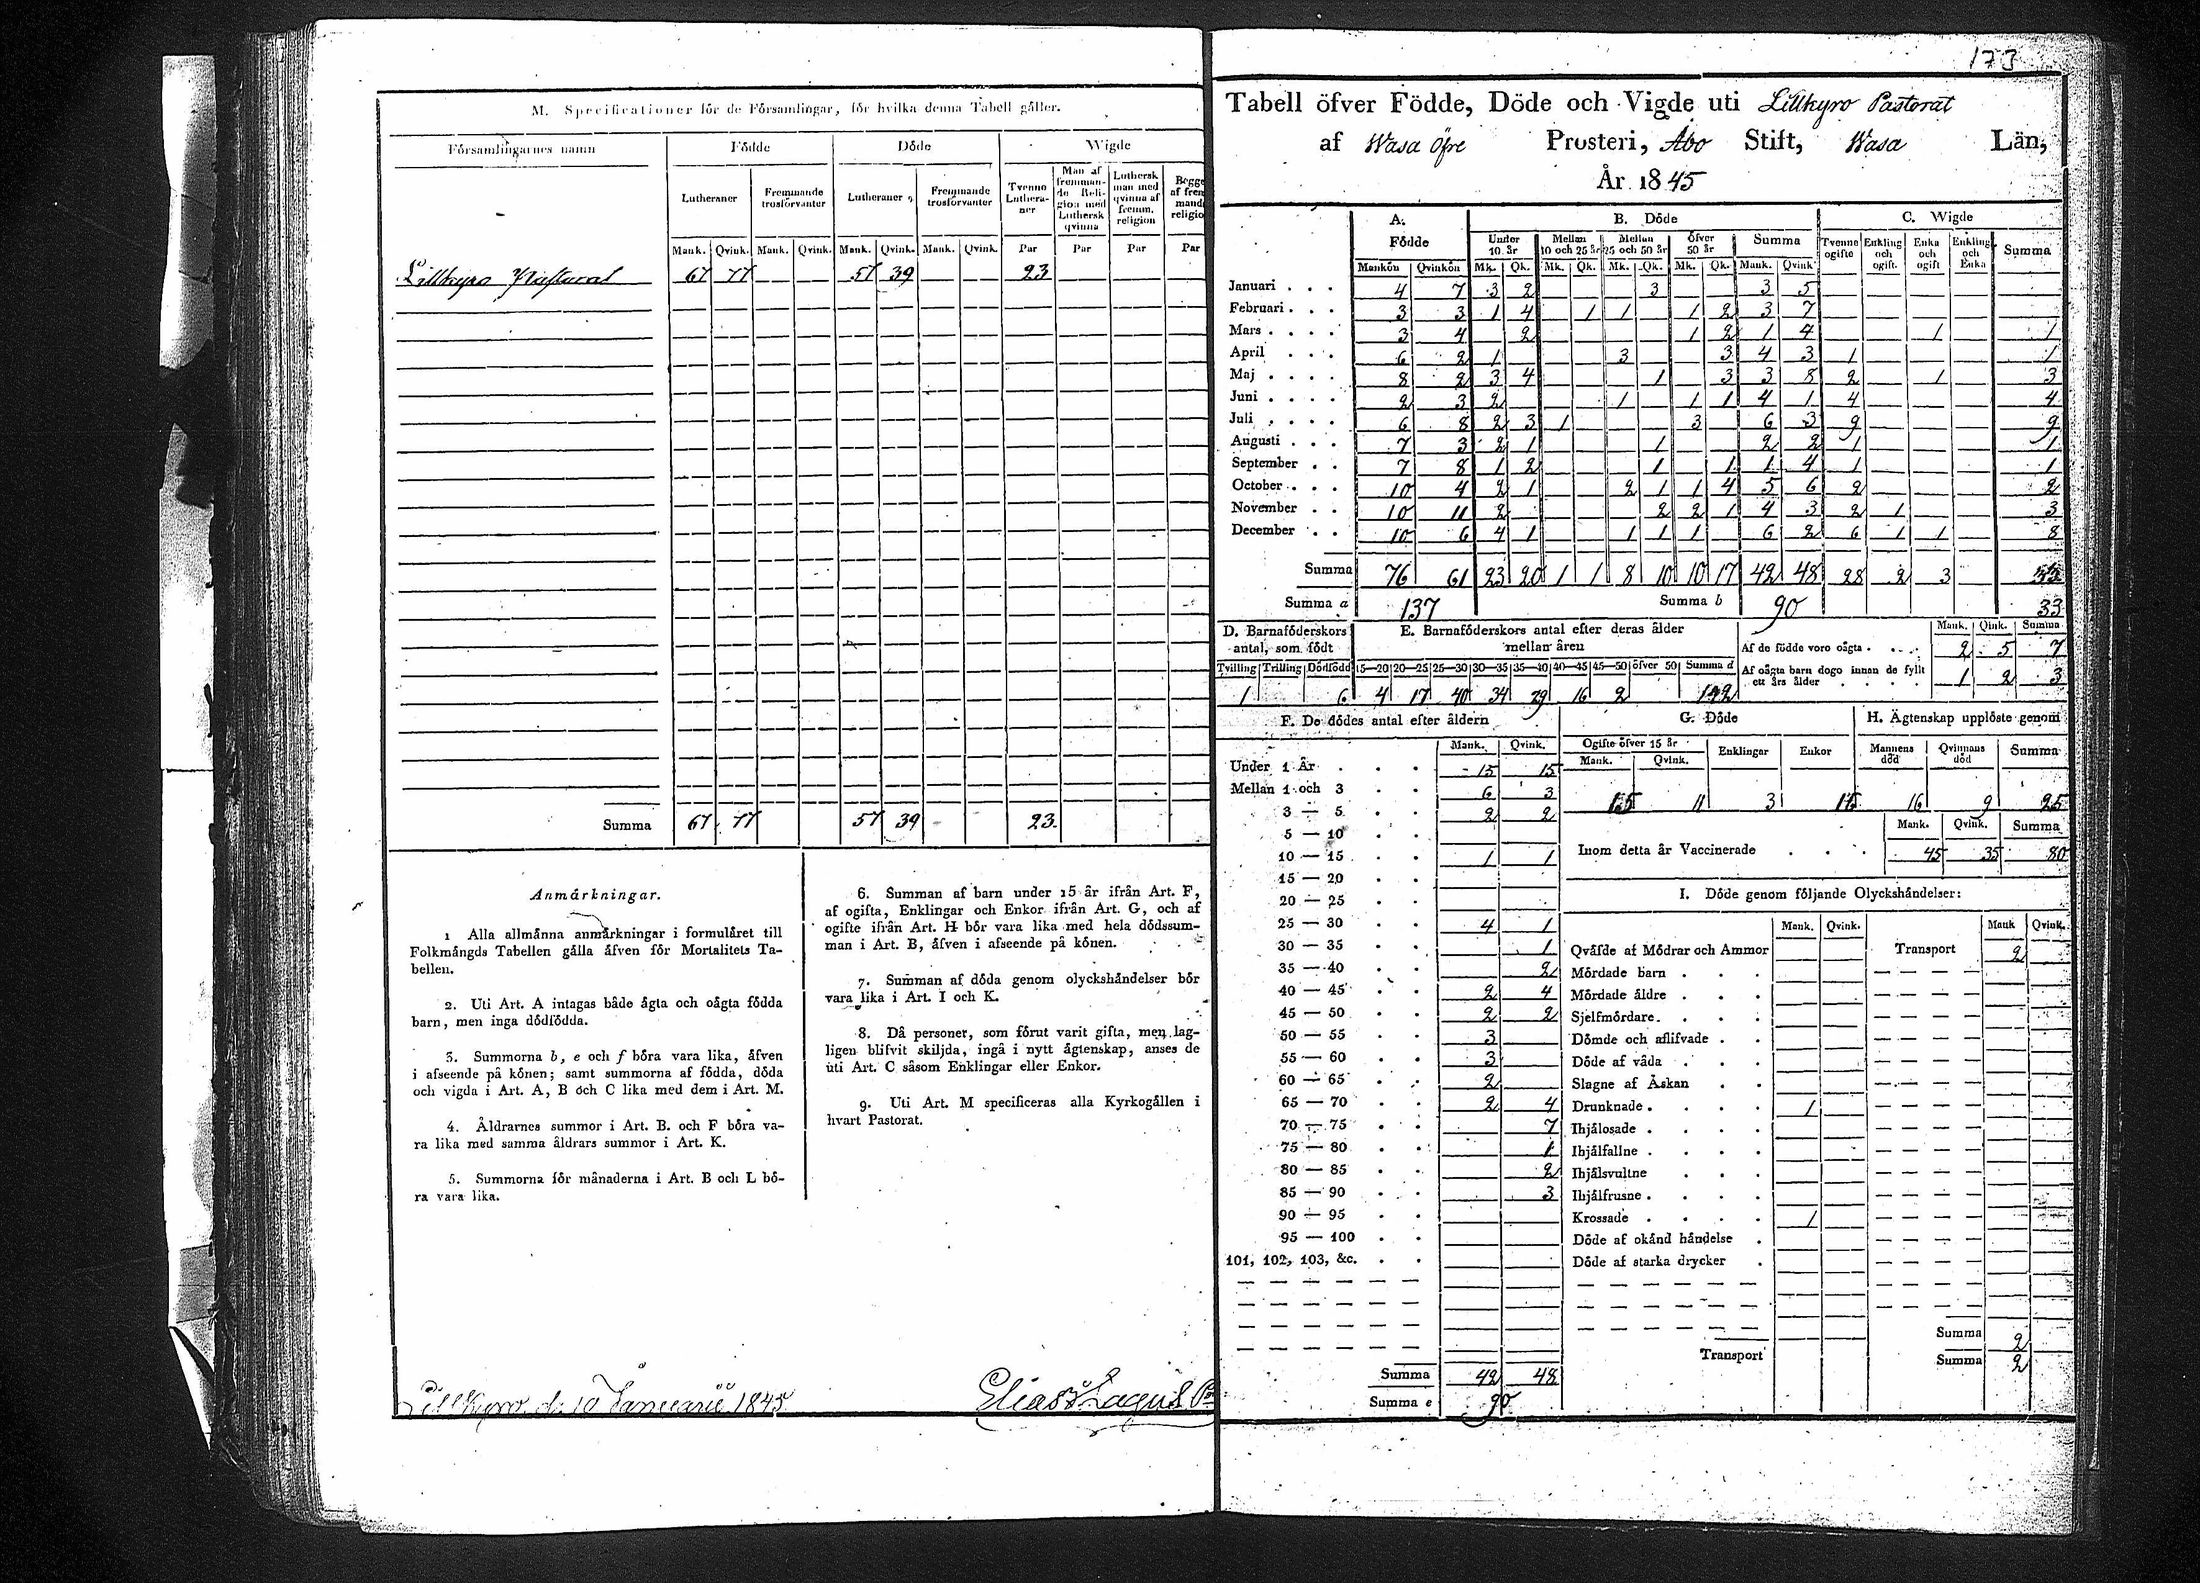 M. Specificationer för de Församlingar, för hvilka denna Tabell gäller.
Församlingarnes namn Födde Döde Wigde
Lutheraner Fremmande trosförvanter Lutheraner Fremmande trosförvanter Tvenne Lutheraner Man af fremmande Religion med Luthersk qvinna Luthersk man med qvinna af fremm. religion Begge af frem mand religio
Mank. Qvink. Mank. Qvink. Mank. Qvink. Mank. Qvink. Par Par Par Par
Lillkyro Pastorat 67 77 57 39 23
Summa 67 77 57 39 23
Anmärkningar.
1 Alla allmänna anmärkningar i formuläret till
Folkmängds Tabellen gälla äfven för Mortalitets Ta-
bellen.
2. Uti Art. A intagas både ägta och oägta födda
barn, men inga dödfödda.
3. Summorna b, e och f böra vara lika, äfven
i afseende på könen; samt summorna af födda, döda
och vigda i Art. A, B och C lika med dem i Art. M.
4. Åldrarnes summor i Art. B. och F böra va-
ra lika med samma åldrars summor i Art. K.
5. Summorna för månaderna i Art. B och L bö-
ra vara lika.
6. Summan af barn under 15 år ifrån Art. F,
af ogifta, Enklingar och Enkor ifrån Art. G, och af
ogifte ifrån Art. H bör vara lika med hela dödssum-
man i Art. B, äfven i afseende på könen.
7. Summan af döda genom olyckshändelser bör
vara lika i Art. I och K.
8. Då personer, som förut varit gifta, men lag-
ligen blifvit skiljda, ingå i nytt ägtenskap, anses de
uti Art. C såsom Enklingar eller Enkor.
9. Uti Art. M specificeras alla Kyrkogällen i
hvart Pastorat.
Lillkyro d. 10 Januarii 1845
Elias Lagus
173
Tabell öfver Födde, Döde och Vigde uti Lillkyro Pastorat
af Wasa Öfre Prosteri, Åbo Stift, Wasa Län,
År 1845
A. Födde B. Döde C. Wigde
Under 10 år Mellan 10 och 25 år Mellan 25 och 50 år Öfver 50 år Summa Tvenne ogifte Enkling och ogift. Enka och ogift Enkling och Enka Summa
Mankön Qvinkön Mk. Qk. Mk. Qk. Mk. Qk. Mk. Qk. Mank. Qvink
Januari 4 7 3 2 3 3 5
Februari 3 3 1 4 1 1 1 2 3 7
Mars 3 4 2 1 2 1 4 1 1
April 6 2 1 3 3 4 3 1 1
Maj 8 2 3 4 1 3 3 8 2 1 3
Juni 2 3 2 1 1 1 4 1 4 4
Juli 6 8 2 3 1 3 6 3 9 9
Augusti 7 3 2 1 1 2 2 1 1
September 7 8 1 2 1 1 1 4 1 1
October 10 4 2 1 2 1 1 4 5 6 2 2
November 10 11 2 2 2 1 4 3 2 1 3
December 10 6 4 1 1 1 1 6 2 6 1 1 8
Summa 76 61 23 20 1 1 8 10 10 17 42 48 28 2 3 33
Summa a 137 Summa b 90 33
D. Barnaföderskors antal, som födt
Tvilling Trilling Dödfödd
1 6
E. Barnaföderskors antal efter deras ålder mellan åren
15—20 20—25 25—30 30—35 35—40 40—45 45—50 öfver 50 Summa d
4 17 40 34 29 16 2 142
Mank. Qink. Summa
Af de födde voro oägta 2 5 7
Af oägta barn dogo innan de fyllt ett års ålder 1 2 3
F. De dödes antal efter åldern
Mank. Qvink.
Under 1 År 15 15
Mellan 1 och 3 6 3
3 — 5 2 2
5 — 10
10 — 15 1 1
15 — 20
20 — 25
25 — 30 4 1
30 — 35 1
35 — 40 2
40 — 45 2 4
45 — 50 2 2
50 — 55 3
55 — 60 3
60 — 65 2
65 — 70 2 4
70 — 75 7
75 — 80 1
80 — 85 2
85 — 90 3
90 — 95
95 — 100
101, 102, 103, &c.
Summa 42 48
Summa e 90
G. Döde
Ogifte öfver 15 år Enklingar Enkor
Mank. Qvink.
11 3
H. Ägtenskap upplöste genom
Mannens död Qvinnans död Summa
16 9 25
Mank. Qvink. Summa
Inom detta år Vaccinerade 45 35 80
I. Döde genom följande Olyckshändelser:
Mank. Qvink. Mank Qvink.
Qväfde af Mödrar och Ammor Transport 2
Mördade barn
Mördade äldre
Sjelfmördare
Dömde och aflifvade
Döde af våda
Slagne af Åskan
Drunknade 1
Ihjälosade
Ihjälfallne
Ihjälsvultne
Ihjälfrusne
Krossade 1
Döde af okänd händelse
Döde af starka drycker
Summa 2
Transport Summa 2